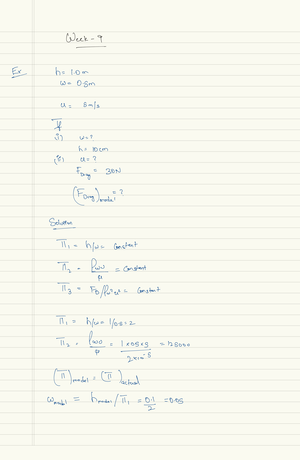 Week - 9
Ex
h = 1.0 m
w = 0.5m
u = 5m/s
If
w = ?
h = 10cm
u = ?
F Drag = 30N
(F Drag) model = ?
Solution
π₁ = h/w = constant
π₂ = ρwu/μ = constant
π₃ = F_D/ρu²w² = constant
π₁ = h/w = 1/0.5 = 2
(π) model = (π) actual
w model = h model / π₁ = 0.1/2 = 0.05